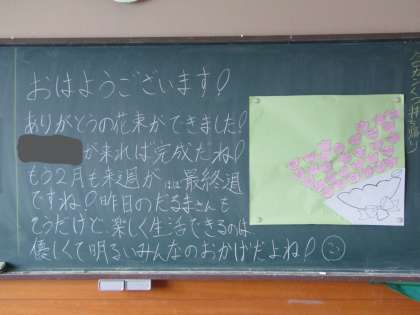 おはようございます!
ありがとうの花束ができました!
が来れば完成だね!
もう2月も来週がほぼ最終週
ですね!昨日のだるまさんも
そうだけど、楽しく生活できるのは
優しくて明るいみんなのおかげだよね!